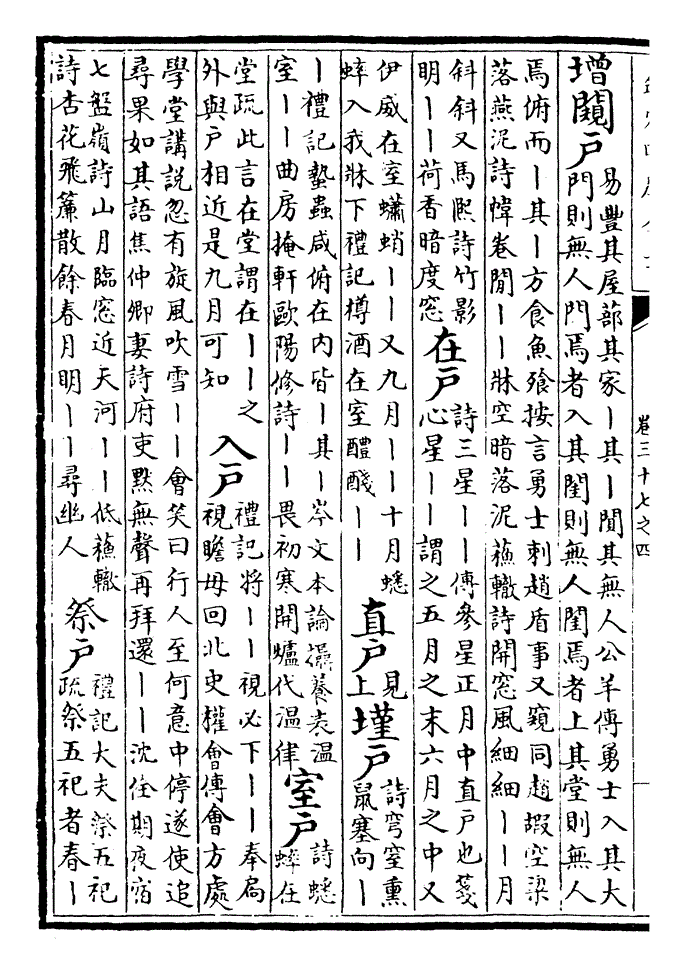 卷三十七之四
增闚戶
易豐其屋蔀其家丨其丨闃其無人公羊傳勇士入其大
門則無人門焉者入其閨則無人閨焉者上其堂則無人
焉俯而丨其丨方食魚飱按言勇士刺趙盾事又窺同趙嘏空梁
落燕泥詩幃卷閒丨丨牀空暗落泥蘇轍詩開窓風細細丨丨月
斜斜又馬熙詩竹影
明丨丨荷香暗度窓
在戶
詩三星丨丨傳參星正月中直戶也箋
心星丨丨謂之五月之末六月之中又
伊威在室蠨蛸丨丨又九月丨丨十月蟋
蟀入我牀下禮記樽酒在室醴醆丨丨
直戶
見
上
墐戶
詩穹窒熏
鼠塞向丨
丨禮記蟄蟲咸俯在內皆丨其丨岑文本論攝養表溫
室丨丨曲房掩軒歐陽修詩丨丨畏初寒開爐代溫律
室戶
詩蟋
蟀在
堂疏此言在堂謂在丨丨之
外與戶相近是九月可知
入戶
禮記將丨丨視必下丨丨奉扃
視瞻毋回北史權會傳會方處
學堂講說忽有旋風吹雪丨丨會笑曰行人至何意中停遂使追
尋果如其語焦仲卿妻詩府吏默無聲再拜還丨丨沈佺期夜宿
七盤嶺詩山月臨窓近天河丨丨低蘇轍
詩杏花飛簾散餘春月明丨丨尋幽人
祭戶
禮記大夫祭五祀
疏祭五祀者春丨